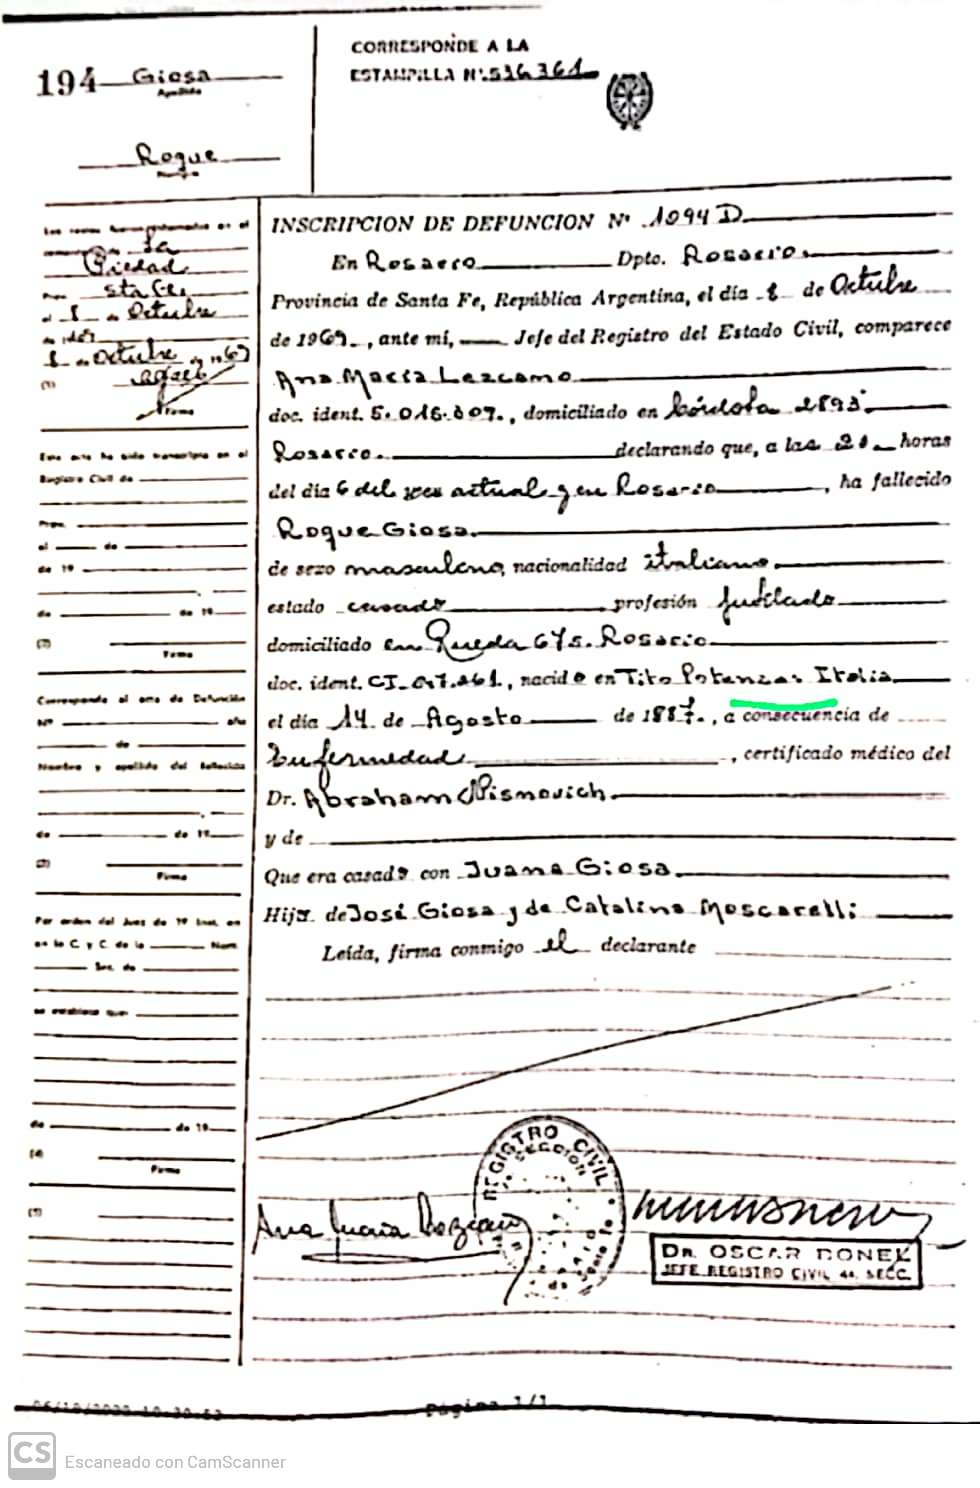 194 Giosa
Apellido
Roque
CORRESPONDE A LA
ESTAMPILLA Nº 536361
Los restos fueron inhumados en el
de La
Piedad
Sta Fe
el 8 de Octubre
de 1969
8 de Octubre de 1969
(1)
Firma
Este acta ha sido transcripta en el
Registro Civil de
Prov.
el de
de 19
de de 19
(2)
Firma
Corresponde al acta de Defunción
Nº año
de
Nombre y apellido del fallecido
de de 19
(3)
Firma
Por orden del Juez de 1ª Inst. en
en lo C. y C. de la Nom.
Sec. de
se establece que:
de de 19
(4)
Firma
INSCRIPCION DE DEFUNCION Nº 1094 D
En Rosario Dpto. Rosario
Provincia de Santa Fe, República Argentina, el día 8 de Octubre
de 1969., ante mí, Jefe del Registro del Estado Civil, comparece
Ana María Lezcano
doc. ident. 5.016.807., domiciliado en Córdoba 2893
Rosario. declarando que, a las 20 horas
del día 6 del mes actual y en Rosario, ha fallecido
Roque Giosa.
de sexo masculino, nacionalidad italiano.
estado casado profesión jubilado
domiciliado en Rueda 675. Rosario
doc. ident. CI, nacido en Tito Potenza. Italia
el día 14 de Agosto de 1887., a consecuencia de
Enfermedad, certificado médico del
Dr. Abraham Nismovich
y de
Que era casado con Juana Giosa.
Hijo de José Giosa y de Catalina Moscarelli
Leída, firma conmigo el declarante
REGISTRO CIVIL
SECCION
Santa Fe
DR. OSCAR DONEK
JEFE REGISTRO CIVIL 4a. SECC.
Página 1/1
CS Escaneado con CamScanner